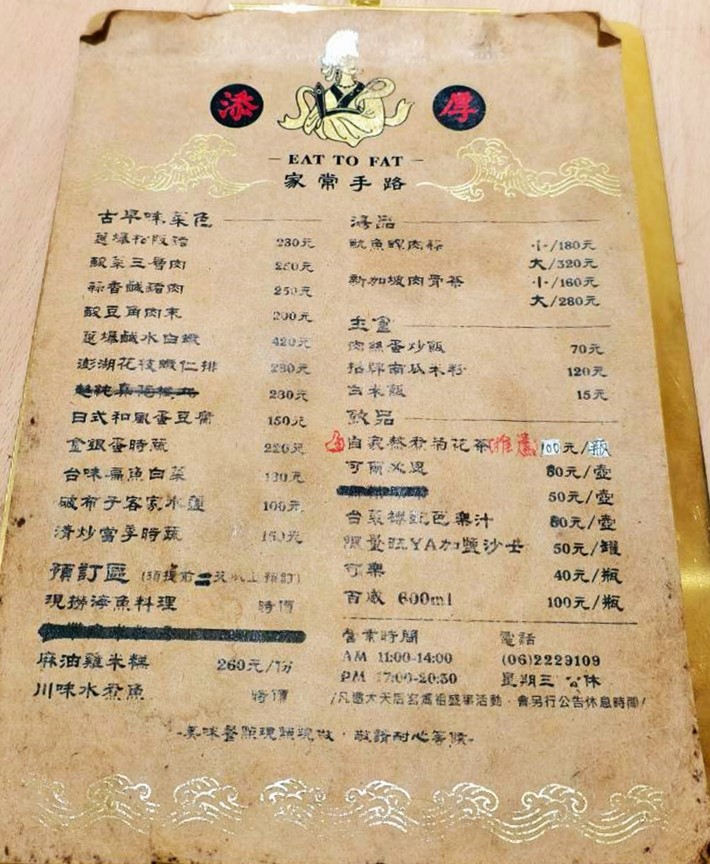 添 厚
EAT TO FAT
家常手路
古早味菜色
蔥爆松阪豬 230元
酸菜三層肉 250元
蒜香鹹豬肉 250元
酸豆角肉末 200元
蔥爆鹹水白蝦 420元
澎湖花枝蝦仁排 280元
230元
日式和風蛋豆腐 150元
金銀蛋時蔬 220元
台味扁魚白菜 180元
破布子客家水蓮 100元
清炒當季時蔬 150元
預訂區 (須提前二天以上預訂)
現撈海魚料理 時價
麻油雞米糕 260元/份
川味水煮魚 時價
湯品
魷魚螺肉蒜 小/180元
大/320元
新加坡肉骨茶 小/160元
大/280元
主食
肉絲蛋炒飯 70元
招牌南瓜米粉 120元
白米飯 15元
飲品
自家熬煮菊花茶 推薦 100元/瓶
可爾必思 80元/壺
50元/壺
台菜標配芭樂汁 80元/壺
限量旺YA加鹽沙士 50元/罐
可樂 40元/瓶
百威 600ml 100元/瓶
營業時間 電話
AM 11:00-14:00 (06)2229109
PM 17:00-20:30 星期三 公休
/凡遇大天后宮媽祖盛事活動，會另行公告休息時間/
-美味餐點現點現做，敬請耐心等候-